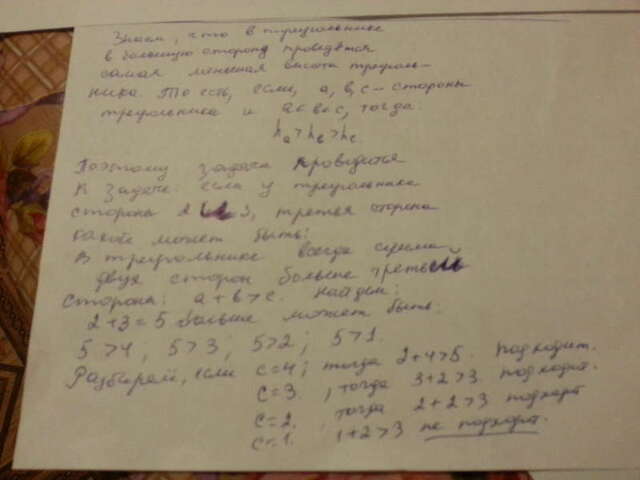 Знаем, что в треугольнике
в большую сторону проведётся
самая меньшая высота треуголь-
ника. То есть, если, a, b, c - стороны
треугольника и a<b<c, тогда:
ha > hb > hc
Поэтому задача проводится
к задаче: если у треугольника
стороны 2 и 3, третья сторона
какое может быть:
В треугольнике всегда сумма
двух сторон больше третьей
сторона: a+b>c. Найдем:
2+3=5 больше может быть:
5>4; 5>3; 5>2; 5>1.
Разбирай, если c=4; тогда 2+4>5. подходит.
c=3. , тогда 3+2>3. подходит.
c=2. , тогда 2+2>3 подходит
c=1. 1+2>3 не подходит.